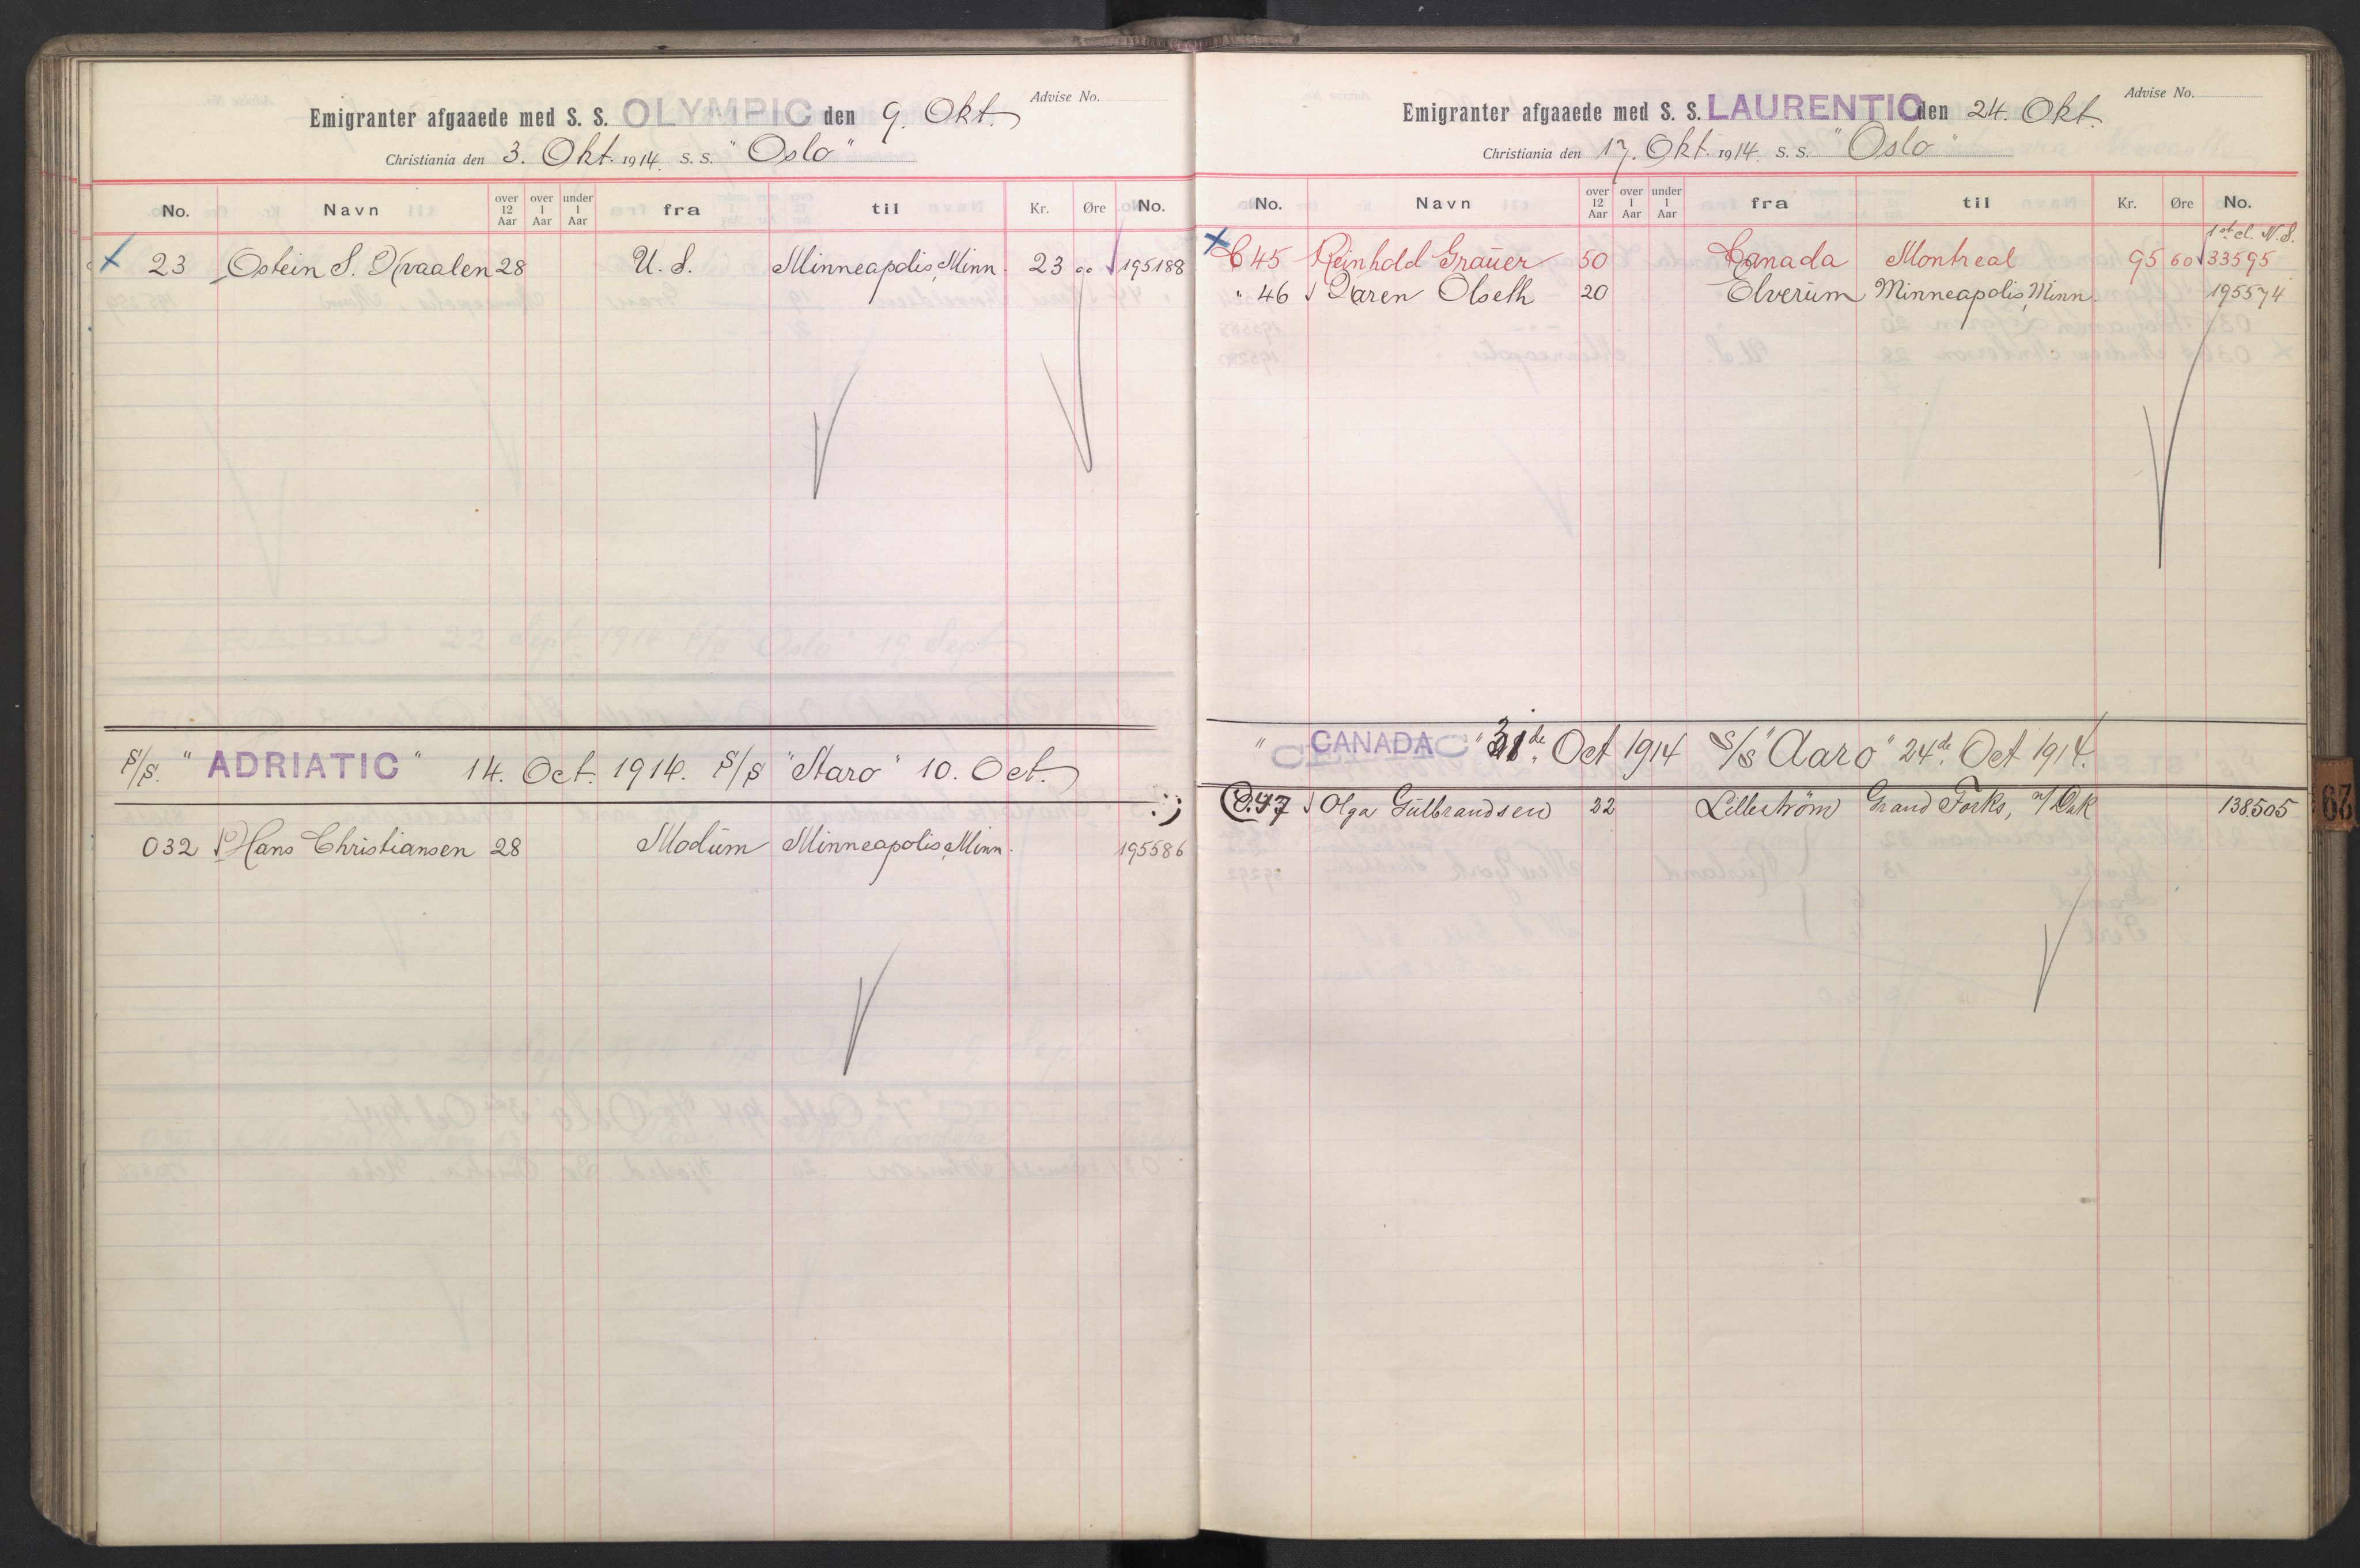 Advise No.
Emigranter afgaaede med S. S. OLYMPIC den 9. Okt.
Christiania den 3. Okt. 1914. S. S. "Oslo"
No. Navn over 12 Aar over 1 Aar under 1 Aar fra til Kr. Øre No.
23 Ostein S. Kvaalen 28 U. S. Minneapolis, Minn. 23 00 195188
S/S. "ADRIATIC" 14. Oct. 1914. S/S "Aaro" 10. Oct.
032 Hans Christiansen 28 Modum Minneapolis, Minn. 195586
Advise No.
Emigranter afgaaede med S. S. LAURENTIC den 24. Okt.
Christiania den 17. Okt. 1914. S. S. "Oslo"
No. Navn over 12 Aar over 1 Aar under 1 Aar fra til Kr. Øre No.
1st cl. N. S.
C 45 Reinhold Graŭer 50 Canada Montreal 95 60 33595
" 46 Karen Olseth 20 Elverŭm Minneapolis, Minn. 195574
" CANADA " 31de. Oct 1914 S/S "Aaro" 24de. Oct 1914.
C.47 Olga Gŭlbrandsen 22 Lillestrøm Grand Forks, N/Dak 138505